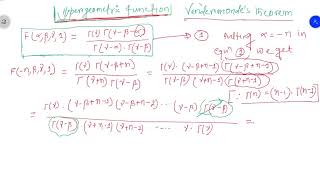 Hypergeometric function Vandermonde's Theorem
F(α,β,γ,1) = Γ(γ) Γ(γ-β-α) / Γ(γ-α) Γ(γ-β) ① Putting α = -n in
eqn ① we get
F(-n,β,γ,1) = Γ(γ) Γ(γ-β+n) / Γ(γ+n) Γ(γ-β) = Γ(γ) (γ-β+n-1) Γ(γ-β+n-1) / Γ(γ-β) (γ+n-1) Γ(γ+n-1)
[∵ Γ(n) = (n-1) Γ(n-1)]
= Γ(γ) · (γ-β+n-1) (γ-β+n-2) ---- (γ-β) Γ(γ-β) / Γ(γ-β) (γ+n-1) (γ+n-2) ---- γ · Γ(γ) =